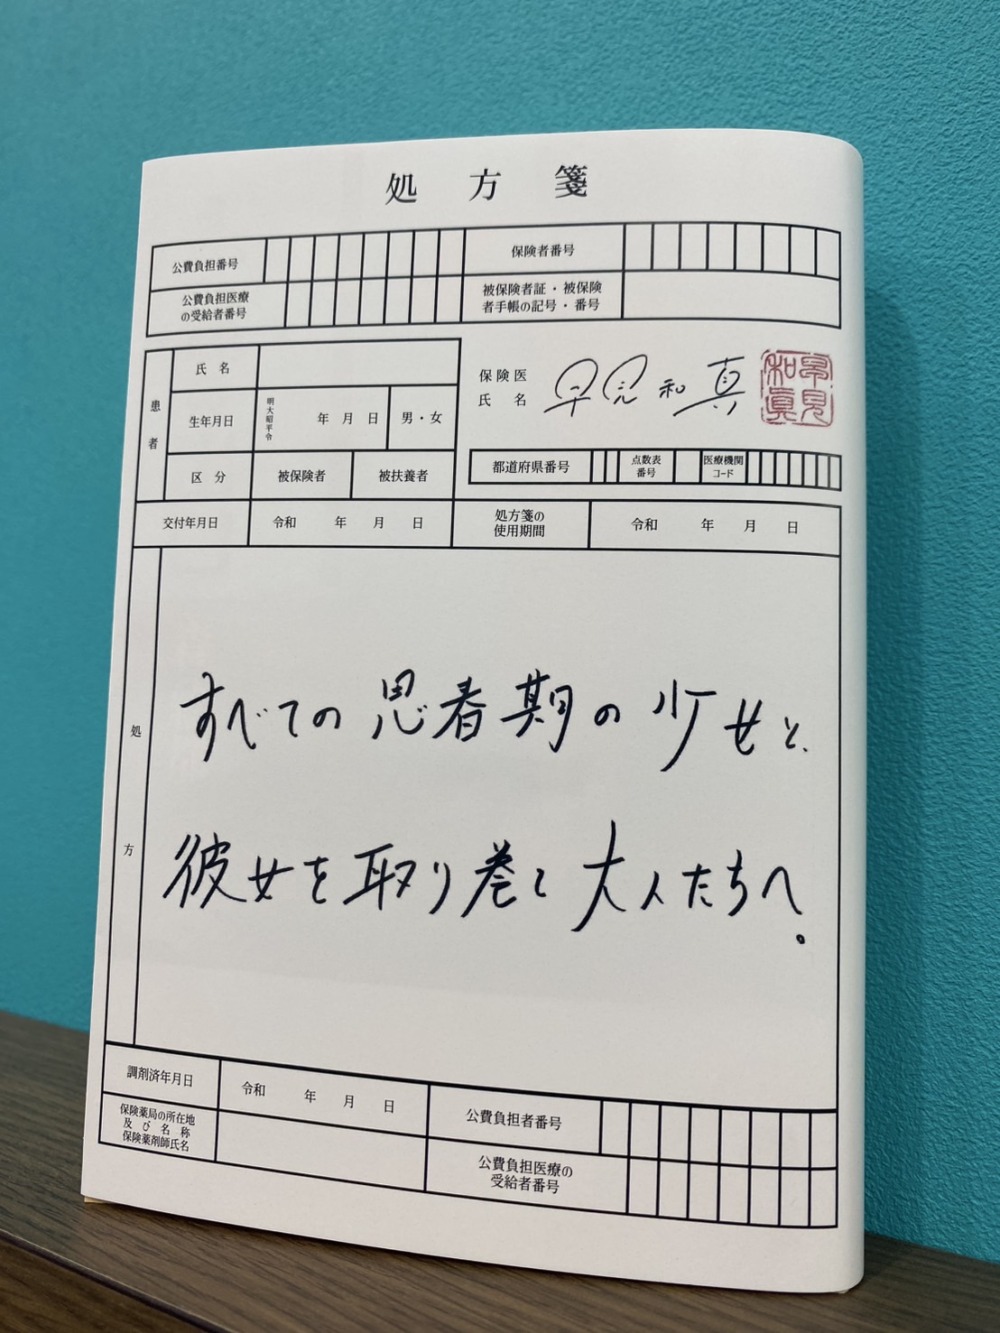 処方箋
公費負担番号
保険者番号
公費負担医療
の受給者番号
被保険者証・被保険
者手帳の記号・番号
患者
氏名
生年月日
明大昭平令
年 月 日
男・女
区分
被保険者
被扶養者
保険医
氏名
早見和真
早見和眞
都道府県番号
点数表
番号
医療機関
コード
交付年月日
令和 年 月 日
処方箋の
使用期間
令和 年 月 日
処方
すべての思春期の少女と、
彼女を取り巻く大人たちへ。
調剤済年月日
令和 年 月 日
公費負担者番号
保険薬局の所在地
及び名称
保険薬剤師氏名
公費負担医療の
受給者番号